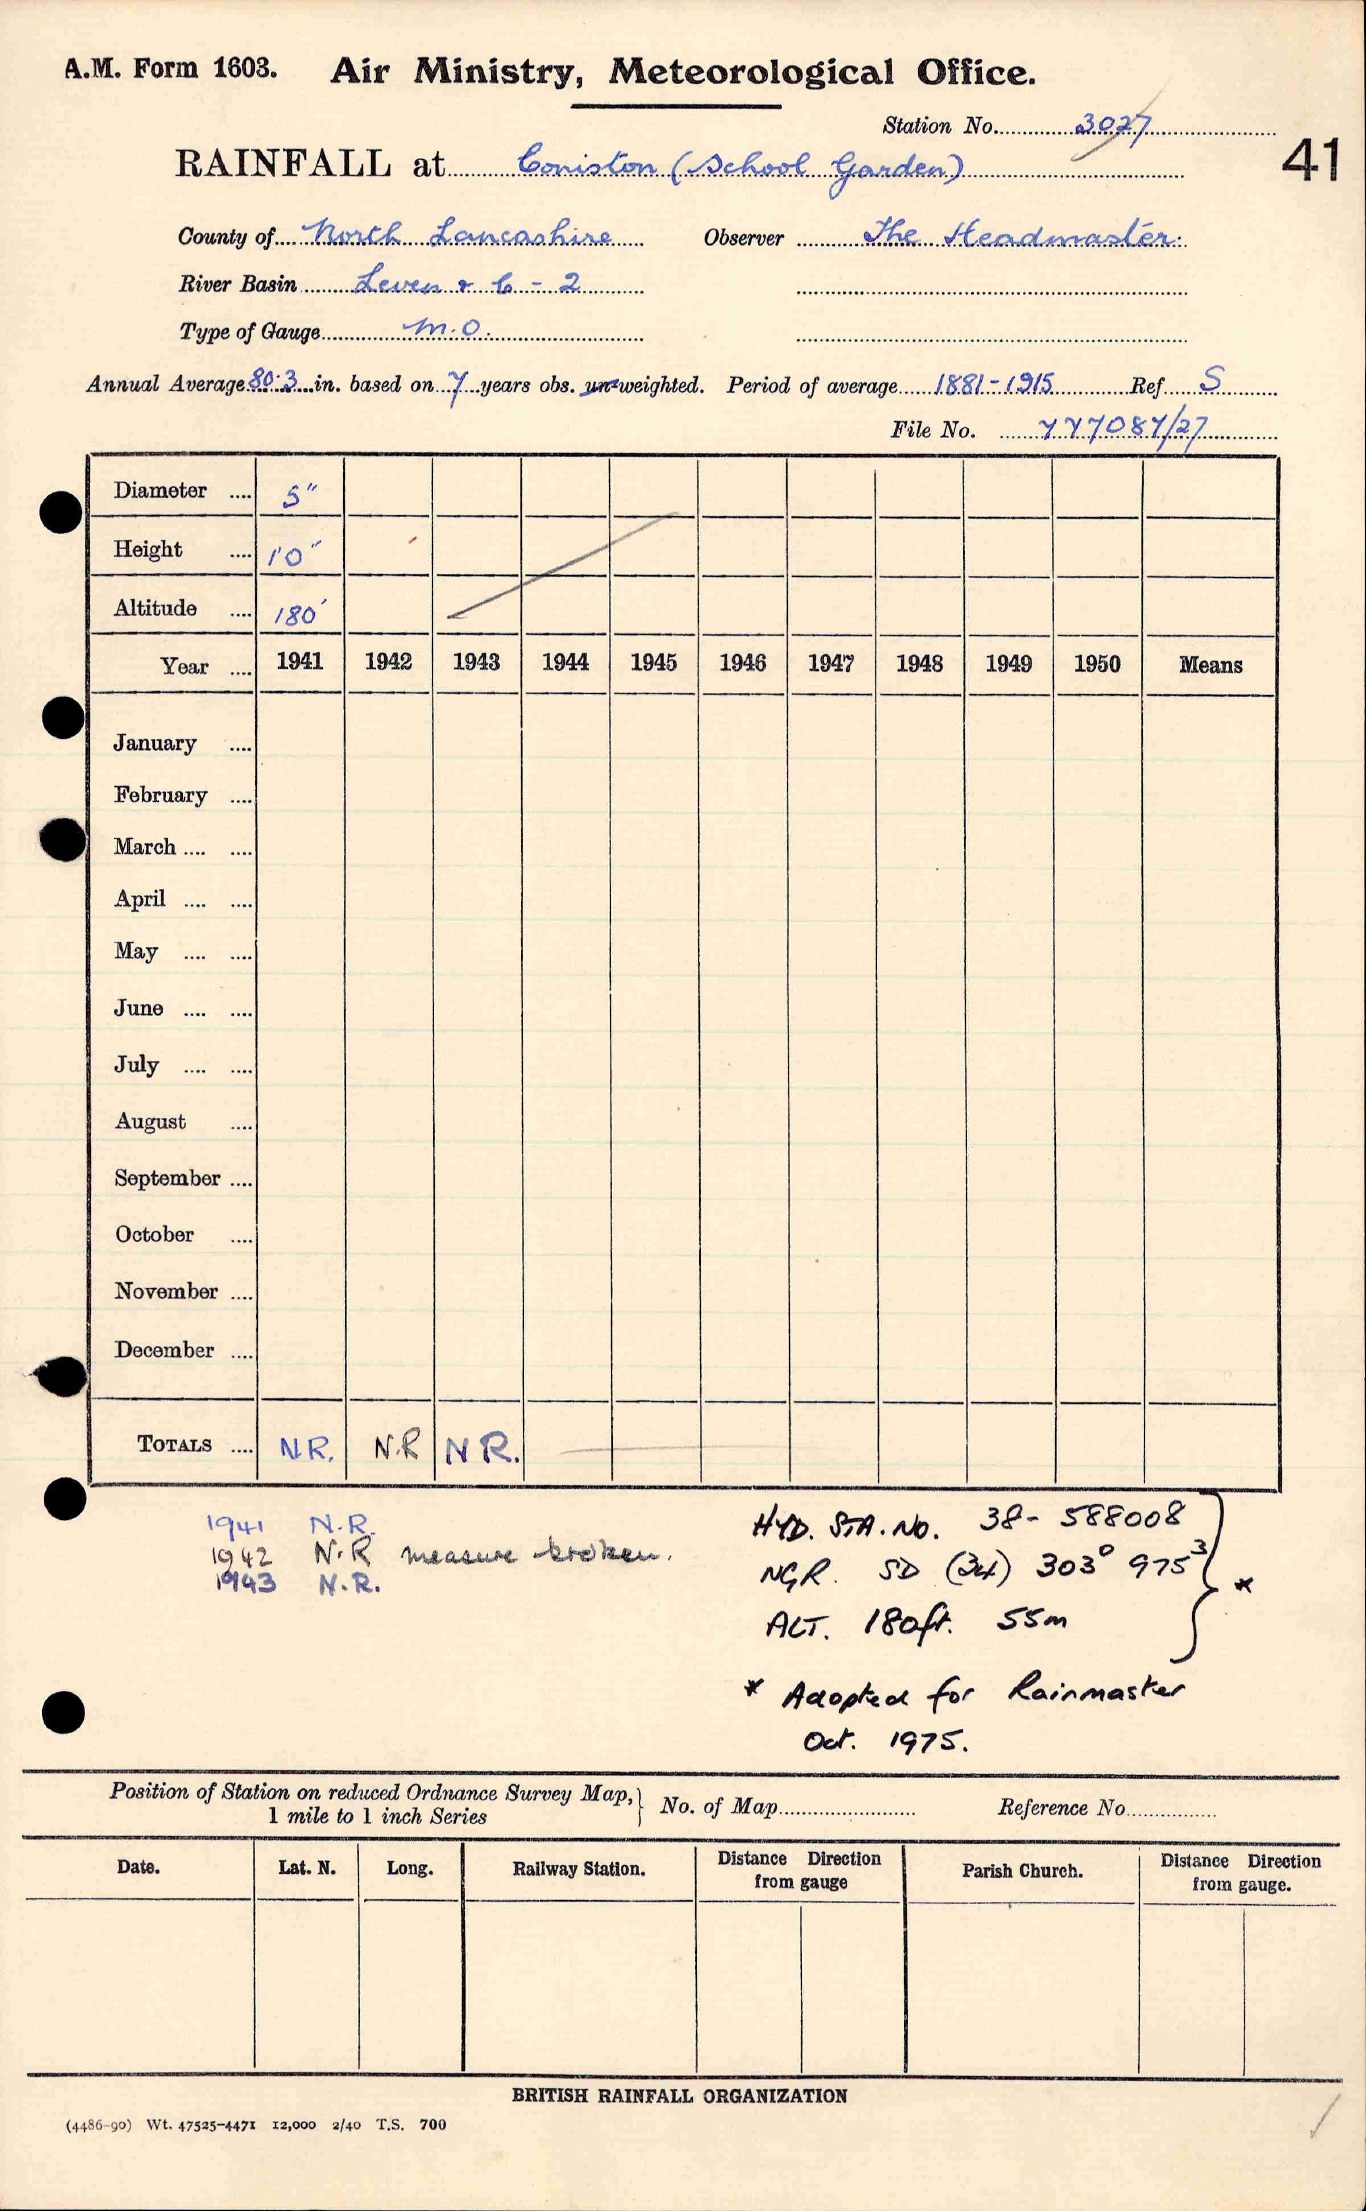 A.M. Form 1603. Air Ministry, Meteorological Office.
Station No. 3027
41
RAINFALL at Coniston (School Garden)
County of North Lancashire Observer The Headmaster.
River Basin Leven & C - 2
Type of Gauge M.O.
Annual Average 80.3 in. based on 7 years obs. un-weighted. Period of average 1881-1915 Ref. S
File No. 777087/27
Diameter .... 5"
Height .... 1'0"
Altitude .... 180'
Year .... 1941 1942 1943 1944 1945 1946 1947 1948 1949 1950 Means
January ....
February ....
March .... ....
April .... ....
May .... ....
June .... ....
July .... ....
August ....
September ....
October ....
November ....
December ....
TOTALS .... N.R. N.R N R.
1941 N.R.
1942 N.R measure broken.
1943 N.R.
HYD. STA. NO. 38- 588008
NGR. SD (34) 303⁰ 975³
ALT. 180ft. 55m
*
* Adopted for Rainmaster
Oct. 1975.
Position of Station on reduced Ordnance Survey Map,} No. of Map Reference No
1 mile to 1 inch Series
Date. Lat. N. Long. Railway Station. Distance Direction from gauge Parish Church. Distance Direction from gauge.
BRITISH RAINFALL ORGANIZATION
(4486-90) Wt. 47525-4471 12,000 2/40 T.S. 700